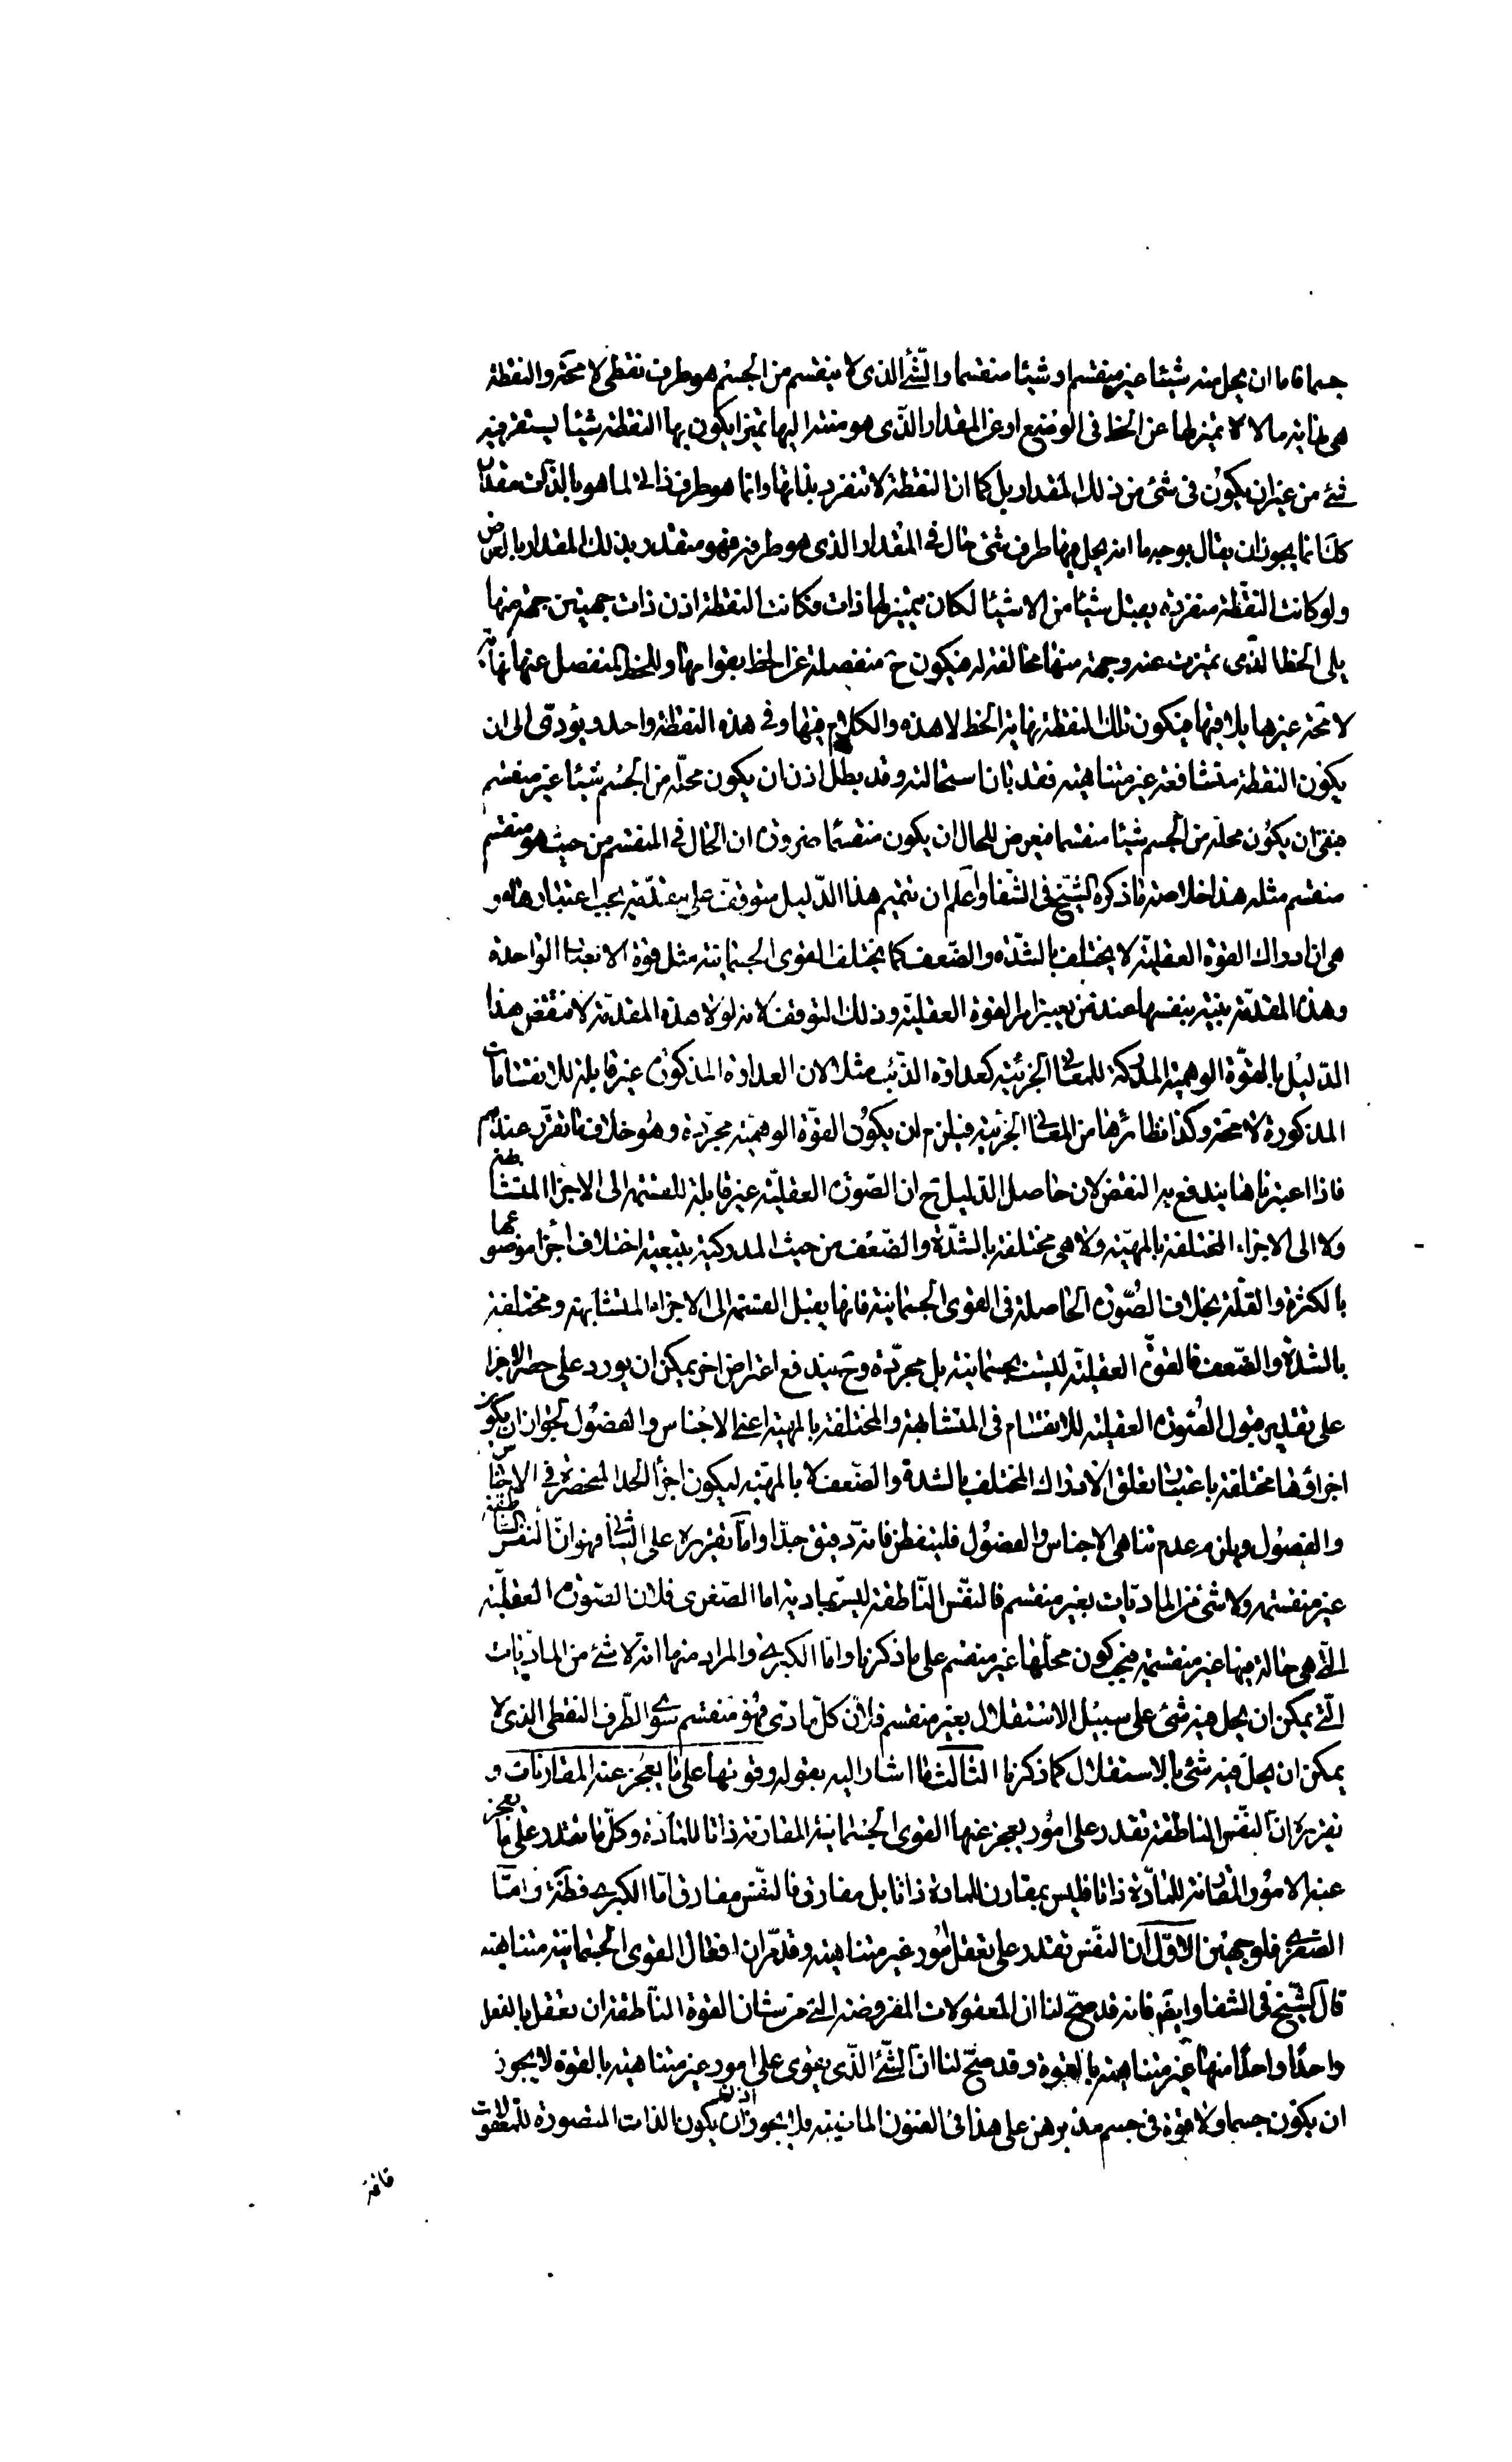 جسما فاما ان يحل منه شيئا غير منقسم او شيئا منقسما والشّئ الذى لا ينقسم من الجسم هو طرف نقطى لا محّة والنقطة
هى نهاية ما لا تميز لها عن الخط فى الوضع او عن المقدار الذّى هو منته اليها تميزا يكون بها النقطة شيئا يستقر فيه
شئ من غير ان يكون فى شئ من ذلك المقدار بل كما ان النقطة لا تنفرد بذاتها وانما هو طرف ذاتى لما هو بالذات مقدار
كك انما يجوز ان يقال بوجه ما انه يحل فيها طرف شئ حال فى المقدار الذى هو طرفه فهو متقدر بذلك المقدار بالعرض
ولو كانت النقطة منفردة يقبل شيئا من الاشيئا لكان يتميز لها ذات فكانت النقطة اذن ذات جهتين جهة منها
يلى الخط الذّى تميزت عنه وجهة منها مخالفة له فيكون ح منفصلة عن الخط بقوامها وللخط المنفصل عنها نهاية
لا محّة غيرها يلاقيها فيكون تلك النقطة نهاية الخط لا هذه والكلام فيها وفى هذه النقطة واحد ويؤدى الى ان
يكون النقطة متشافعة غير متناهية فقد بان استحالته وقد بطل اذن ان يكون محلّه من الجسم شيئا غير منقسم
فبقى ان يكون محله من الجسم شيئا منقسما فيعرض للحال ان يكون منقسما ضرورة ان الحال فى المنقسم من حيث هو منقسم
منقسم مثله هذا خلاصة ما ذكره الشيخ فى الشفا واعلم ان تتميم هذا الدّليل متوقف على مقدّمة يجب اعتبارها و
هى ان ادراك القوة العقلية لا يختلف بالشدّة والضّعف كما يختلف القوى الجسمانية مثل قوة الابصار الواحدة
وهذه المقدّمة بينة بنفسها عند من يعيزامر القوة العقلية وذلك التوقف لانه لولا هذه المقدّمة لانتقض هذا
الدّليل بالقوّة الوهمية المدركة للمعانى الجزئية كعداوة الذّئب مثلا لان العداوة المذكورة غير قابلة للانقسامات
المذكورة لا محّة وكذا نظائرها من المعانى الجزئية فيلزم ان يكون القوّة الوهميّة مجرّدة وهو خلاف ما تقرّر عندهم
فاذا اعتبرناها يندفع به النقض لان حاصل الدّليل ح ان الصّورة العقليّة غير قابلة للقسمة الى الاجزا المتشابهة
ولا الى الاجزاء المختلفة بالمهيّة ولا هى مختلفة بالشدّة والضّعف من حيث المدركية بتبعية اختلاف اجزا موضوعها
بالكثرة والقلّة بخلاف الصّورة الحاصلة فى القوى الجسمانية فانها يقبل القسمة الى الاجزاء المتشابهة ومختلفة
بالشدّة والضّعف فالقوّة العقليّة ليست بجسمانية بل مجرّدة وح يندفع اعتراض اخر يمكن ان يورد على حصر الاجزا
على تقدير قبول الصّورة العقلية للانقسام فى المتشابهة والمختلفة بالمهية اعنى الاجناس والفصول لجواز ان يكون
اجزاؤها مختلفة باعتبار تعلق الادراك المختلف بالشدة والضّعف لا بالمهيّة ليكون اجزأ الحد المنحصرة فى الاجناس
والفصول ويلزم عدم تناهى الاجناس والفصول فليتفطن فانه دقيق جدّا وامّا تقريره على الثانى فهو انّ النفس الناطقة
غير منقسمة ولا شئ من الماديات بغير منقسم فالنفس النّاطقة ليست بمادية اما الصّغرى فلان الصّورة العقليّة
التى هى حالة فيها غير منقسمة فيجب كون محلّها غير منقسم على ما ذكرنا وامّا الكبرى والمراد منها انه لا شئ من المادّيات
التى يمكن ان يحل فيه شئ على سبيل الاستقلال بغير منقسم فلان كلّ مادى فهو منقسم سوى الطّرف النقطى الذى لا
يمكن ان يحل فيه شئ بالاستقلال كما ذكرنا الثالث ما اشار اليه بقوله وقوتها على ما يعجز عنه المقارنات و
تقريره انّ النّفس الناطقة تقدر على امور يعجز عنها القوى الجسمانية المقارنة ذاتا للمادّة وكلّ ما تقدر على ما يعجز
عنه الامور المقارنة للمادّة ذاتا فليس بمقارن للمادة ذاتا بل مفارق فالنّفس مفارق امّا الكبرى فظ وامّا
الصّغرى فلوجهين الاوّل ان النّفس تقدر على تعقل امور غير متناهية وقد مرّ ان افعال القوى الجسمانية متناهية
قال الشيخ فى الشفا وايضم فانه قد صحّ لنا ان المعقولات المفروضة التى من شان القوة النّاطقة ان تعقل بالفعل
واحدًا واحدًا منها غير متناهية بالقوة وقد صحّ لنا انّ الشّئ الذّى يقوى على امور غير متناهية بالقوة لا يجوز
ان يكون جسما ولا قوة فى جسم قد برهن على هذا فى الفنون الماضية فلا يجوز اذن ان يكون الذات المتصورة للمعقولات